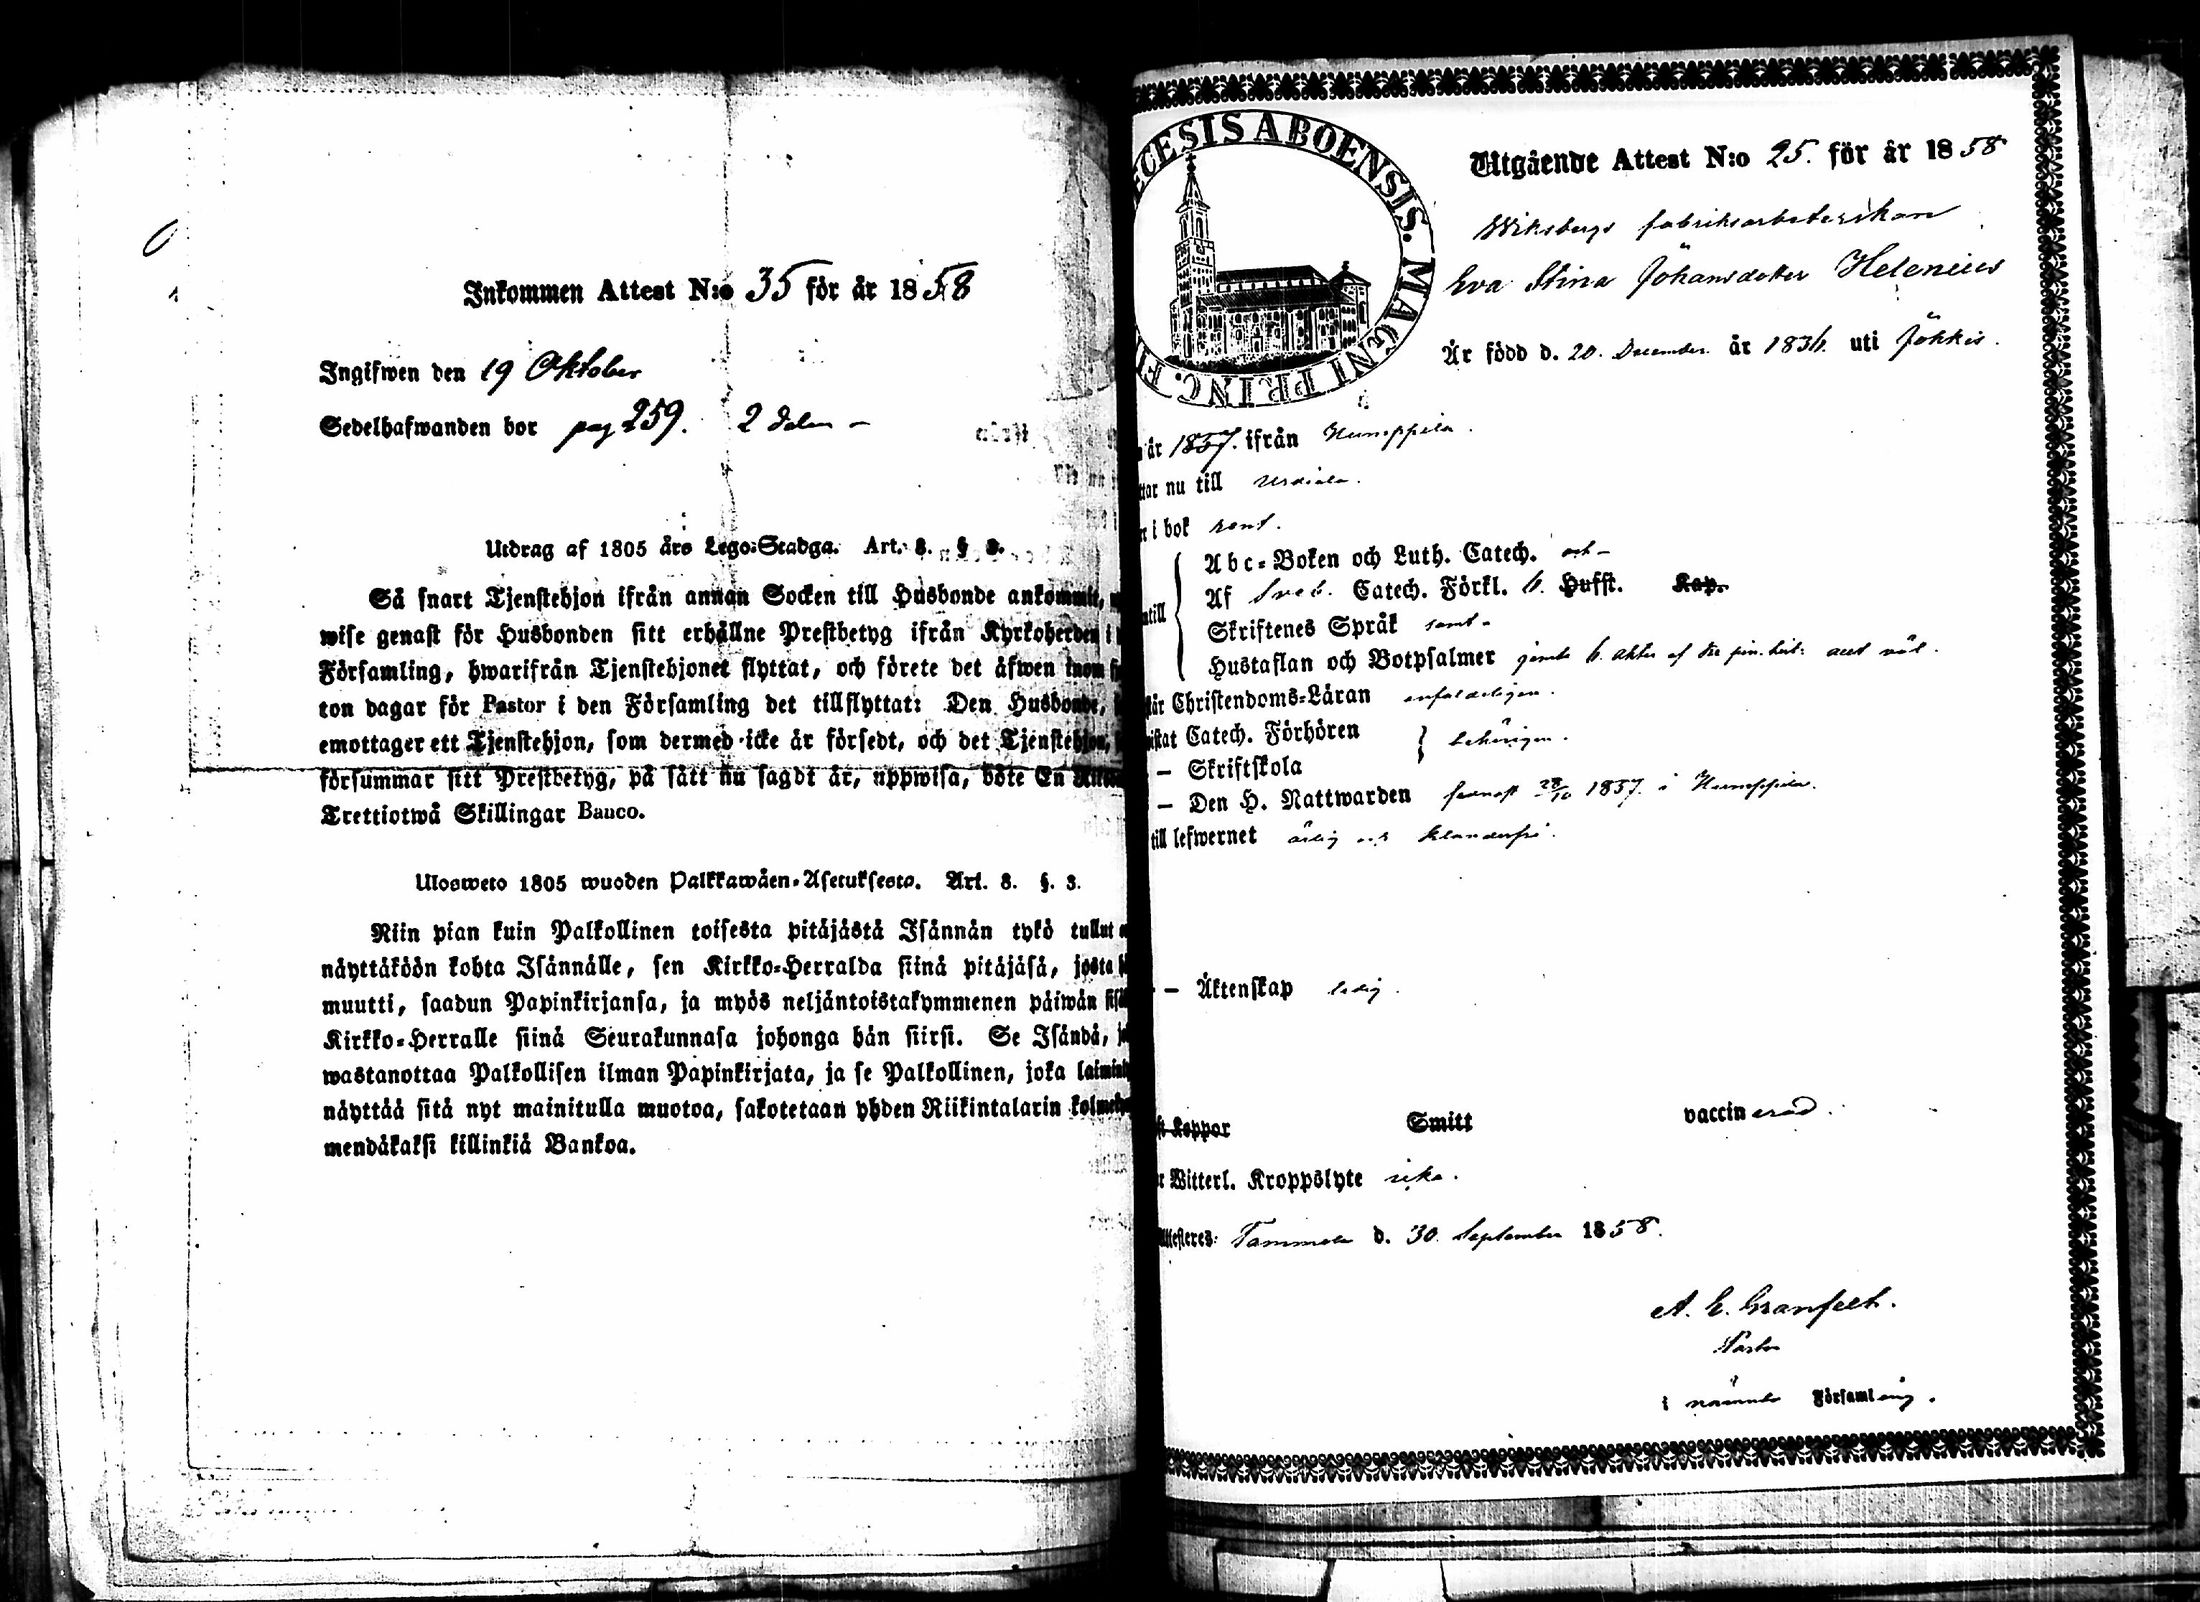 Inkommen Attest N:o 35 för år 1858
Ingifwen den 19 Oktober
Sedelhafwanden bor pag 259. 2 delen –
Utdrag af 1805 års Lego-Stadga. Art. 8. § 3.
Så snart Tjenstehjon ifrån annan Socken till Husbonde ankommit,
wise genast för Husbonden sitt erhållne Prestbetyg ifrån Kyrkoherden i
Församling, hwarifrån Tjenstehjonet flyttat, och förete det äfwen inom
ton dagar för Pastor i den Församling det tillflyttat: Den Husbonde,
emottager ett Tjenstehjon, som dermed icke är försedt, och det Tjenstehjon,
försummar sitt Prestbetyg, på sätt nu sagdt är, uppwisa, böte En
Trettiotwå Skillingar Banco.
Ulosweto 1805 wuoden Palkkawäen-Asetuksesta. Art. 8. §. 3.
Niin pian kuin Palkollinen toisesta pitäjästä Isännän tykö tullut
näyttäköön kohta Isännälle, sen Kirkko-Herralda siinä pitäjäsä, josta
muutti, saadun Papinkirjansa, ja myös neljäntoistakymmenen päiwän
Kirkko-Herralle siinä Seurakunnasa johonga hän siirsi. Se Isändä,
wastanottaa Palkollisen ilman Papinkirjata, ja se Palkollinen, joka
näyttää sitä nyt mainitulla muotoa, sakotetaan yhden Riikintalarin
mendäkaksi killinkiä Bankoa.
ECESIS ABOENSIS. MAGNI PRINC. FI
Utgående Attest N:o 25. för år 1858
Wiksbergs fabriksarbeterskan
Eva Stina Johansdotter Helenius
Är född d. 20. December år 1836. uti Jokkis.
år 1857. ifrån Humppila.
tar nu till Urdiala.
i bok rent.
Abc-Boken och Luth. Catech. och –
Af Sveb. Catech. Förkl. 6. Hufst. Kap.
till
Skriftenes Språk samt –
Hustaflan och Botpsalmer jemte 6. akter af
står Christendoms-Läran enfaldeligen.
Catech. Förhören } behörigen.
– Skriftskola
– Den H. Nattwarden senast 28/10 1857. i Humppila.
till lefwernet ärlig och klanderfri.
– Äktenskap ledig.
Koppor Smitt vaccinerad.
Witterl. Kroppslyte icke.
Attesteres: Tammela d. 30. September 1858.
A. E. Granfelt.
Pastor
i nämnde Församling.